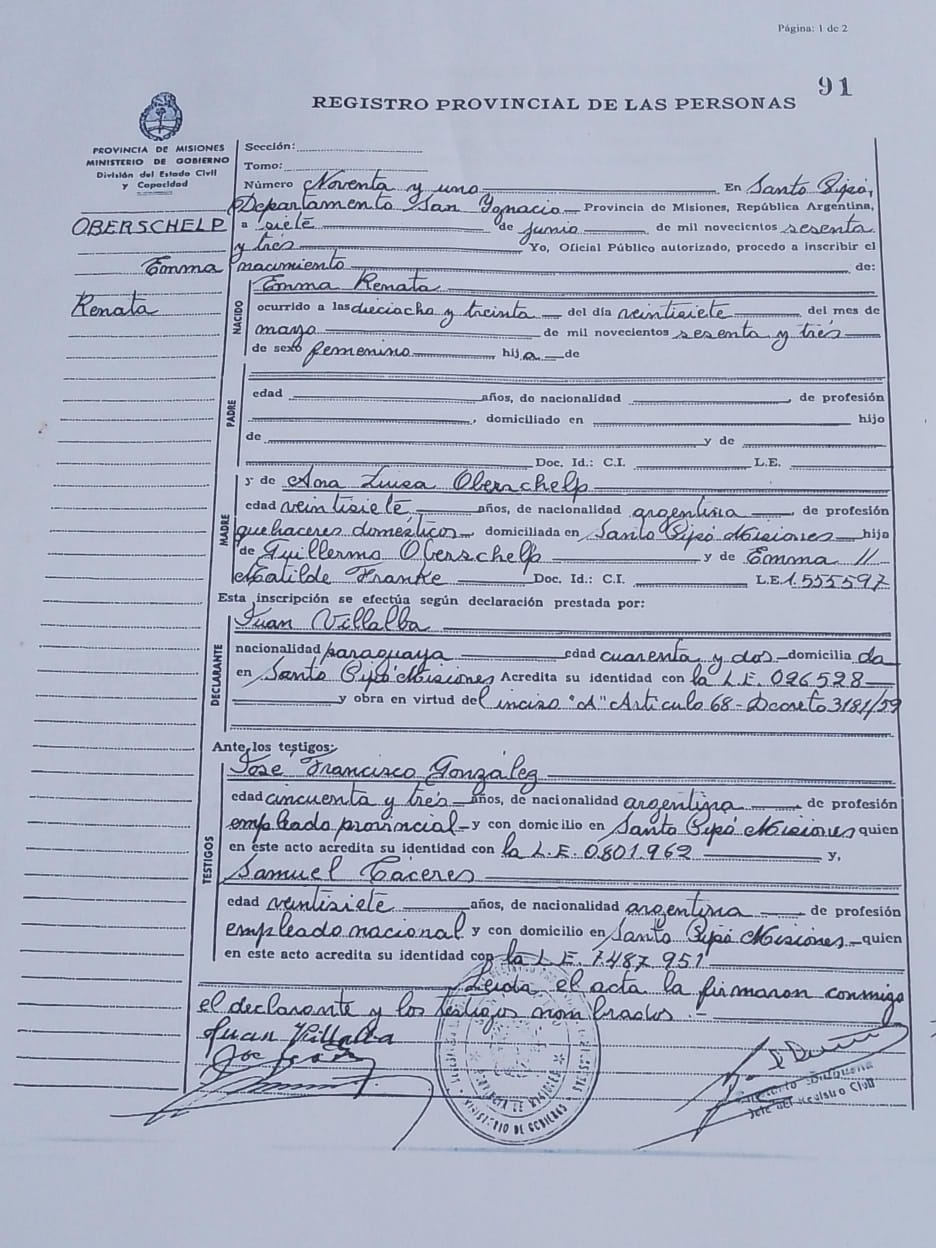 Página: 1 de 2
91
REGISTRO PROVINCIAL DE LAS PERSONAS
PROVINCIA DE MISIONES
MINISTERIO DE GOBIERNO
División del Estado Civil
y Capacidad
OBERSCHELP
Emma
Renata
Sección:
Tomo:
Número Noventa y uno En Santo Pipó,
Departamento San Ygnacio Provincia de Misiones, República Argentina,
a siete de junio de mil novecientos sesenta
y tres Yo, Oficial Público autorizado, procedo a inscribir el
nacimiento de:
NACIDO
Emma Renata
ocurrido a las dieciocho y treinta del día veintisiete del mes de
mayo de mil novecientos sesenta y tres
de sexo femenino hija de
PADRE
edad años, de nacionalidad , de profesión
, domiciliado en hijo
de y de
Doc. Id.: C.I. L.E.
MADRE
y de Ana Luisa Oberschelp
edad veintisiete años, de nacionalidad argentina , de profesión
quehaceres domésticos domiciliada en Santo Pipó Misiones hija
de Guillermo Oberschelp y de Emma
Matilde Franke Doc. Id.: C.I. L.E. 1.555597
Esta inscripción se efectúa según declaración prestada por:
DECLARANTE
Juan Villalba
nacionalidad paraguaya edad cuarenta y dos domicilia da
en Santo Pipó Misiones Acredita su identidad con la L.E. 026528
y obra en virtud del inciso "A" Artículo 68 - Decreto 3181/59
Ante los testigos:
TESTIGOS
José Francisco González
edad cincuenta y tres años, de nacionalidad argentina , de profesión
empleado provincial y con domicilio en Santo Pipó Misiones quien
en este acto acredita su identidad con la L.E. 0.801.962 y,
Samuel Cáceres
edad veintisiete años, de nacionalidad argentina , de profesión
empleado nacional y con domicilio en Santo Pipó Misiones quien
en este acto acredita su identidad con la L.E. 7.487.951
Leída el acta la firmaron conmigo
el declarante y los testigos nombrados.-
Juan Villalba
PROVINCIA DE MISIONES
MINISTERIO DE GOBIERNO
Jefe del Registro Civil